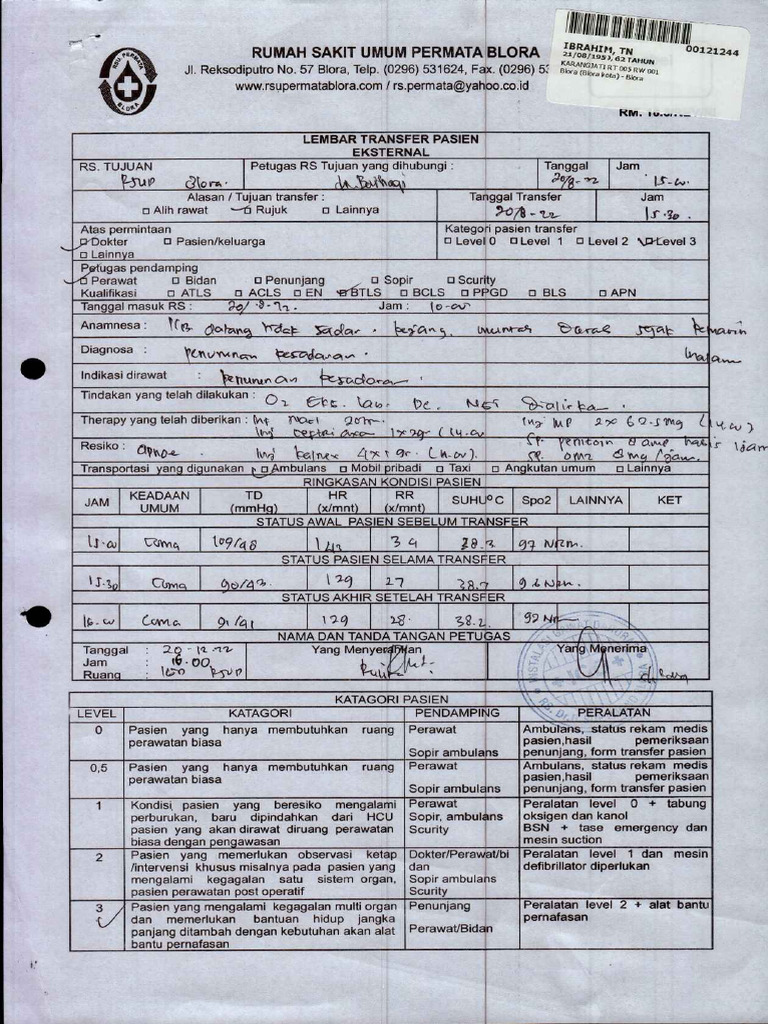 IBRAHIM, TN 00121244
21/08/1957, 62 TAHUN
KARANGJATI RT 005 RW 001
Blora (Blora kota) - Blora
RSU PERMATA
BLORA
RUMAH SAKIT UMUM PERMATA BLORA
Jl. Reksodiputro No. 57 Blora, Telp. (0296) 531624, Fax. (0296) 53
www.rsupermatablora.com / rs.permata@yahoo.co.id
LEMBAR TRANSFER PASIEN
EKSTERNAL
RS. TUJUAN Petugas RS Tujuan yang dihubungi : Tanggal Jam
RSUP Blora. dr. 20/8-22 15.00
Alasan / Tujuan transfer : Tanggal Transfer Jam
Alih rawat Rujuk Lainnya 20/8-22 15.30
Atas permintaan Kategori pasien transfer
Dokter Pasien/keluarga Level 0 Level 1 Level 2 Level 3
Lainnya
Petugas pendamping
Perawat Bidan Penunjang Sopir Scurity
Kualifikasi ATLS ACLS EN BTLS BCLS PPGD BLS APN
Tanggal masuk RS : 20/ Jam : 10.00
Anamnesa : datang tidak sadar. kejang, muntah darah sejak kemarin
malam
Diagnosa : penurunan kesadaran.
Indikasi dirawat : penurunan kesadaran.
Tindakan yang telah dilakukan : O2 EKG. Lab. Dc. NGT Dialirkan.
Therapy yang telah diberikan : Inf NaCl Inj MP 2x 62.5mg
Inj 1x2gr
Resiko : apnoe. Inj kalnex
Transportasi yang digunakan Ambulans Mobil pribadi Taxi Angkutan umum Lainnya
RINGKASAN KONDISI PASIEN
JAM KEADAAN UMUM TD (mmHg) HR (x/mnt) RR (x/mnt) SUHU°C Spo2 LAINNYA KET
STATUS AWAL PASIEN SEBELUM TRANSFER
15.00 Coma 109/48 143 34 38.3 97 NRM.
STATUS PASIEN SELAMA TRANSFER
15.30 Coma 90/43. 129 27 38.7 96 NRM.
STATUS AKHIR SETELAH TRANSFER
16.00 Coma 91/41 129 28. 38.2. 92
NAMA DAN TANDA TANGAN PETUGAS
Tanggal : 20-12-22 Yang Menyerahkan Yang Menerima
Jam : 16.00
Ruang : IGD RSUP
KATAGORI PASIEN
LEVEL KATAGORI PENDAMPING PERALATAN
0 Pasien yang hanya membutuhkan ruang Perawat Ambulans, status rekam medis
perawatan biasa pasien,hasil pemeriksaan
Sopir ambulans penunjang, form transfer pasien
0,5 Pasien yang hanya membutuhkan ruang Perawat Ambulans, status rekam medis
perawatan biasa pasien,hasil pemeriksaan
Sopir ambulans penunjang, form transfer pasien
1 Kondisi pasien yang beresiko mengalami Perawat Peralatan level 0 + tabung
perburukan, baru dipindahkan dari HCU Sopir, ambulans oksigen dan kanol
pasien yang akan dirawat diruang perawatan Scurity BSN + tase emergency dan
biasa dengan pengawasan mesin suction
2 Pasien yang memerlukan observasi ketap Dokter/Perawat/bi Peralatan level 1 dan mesin
/intervensi khusus misalnya pada pasien yang dan defibrillator diperlukan
mengalami kegagalan satu sistem organ, Sopir ambulans
pasien perawatan post operatif Scurity
3 Pasien yang mengalami kegagalan multi organ Penunjang Peralatan level 2 + alat bantu
dan memerlukan bantuan hidup jangka pernafasan
panjang ditambah dengan kebutuhan akan alat Perawat/Bidan
bantu pernafasan